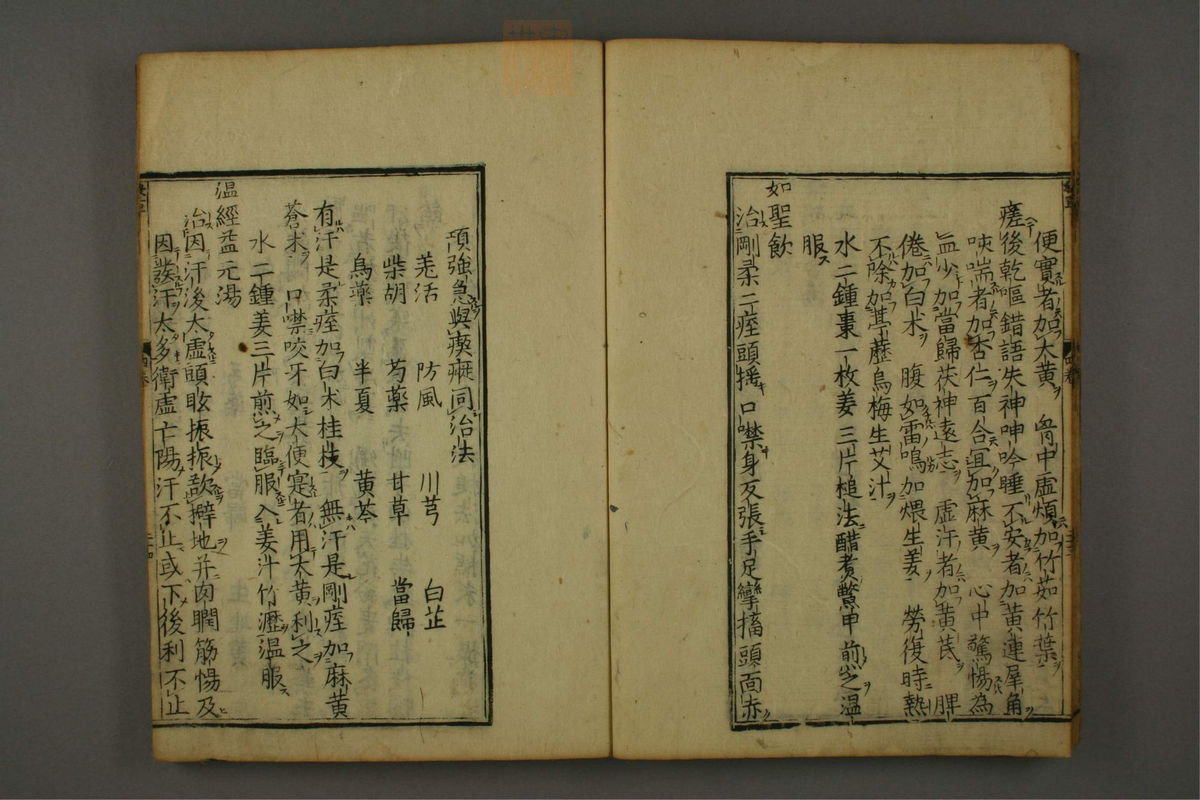 便實者加大黃 胷中虛煩加竹茹竹葉
瘥後乾嘔錯語失神呻吟睡不安者加黃連犀角
咳喘者加杏仁百合冝加麻黃 心中驚惕為
血少加當歸茯神遠志 虛汗者加黃芪 脾
倦加白术 腹如雷鳴加煨生姜 勞復時熱
不除加葶藶烏梅生艾汁
水二鍾棗一枚姜三片槌法醋煑鱉甲煎之温
服
如聖飲
治剛柔二痙頭揺口噤身反張手足攣搐頭面赤
項強急與瘈瘲同治法
羌活 防風 川芎 白芷
柴胡 芍藥 甘草 當歸
烏藥 半夏 黃芩
有汗是柔痙加白术桂枝 無汗是剛痙加麻黃
蒼术 口噤咬牙如大便寔者用大黃利之
水二鍾姜三片煎之臨服入姜汁竹瀝温服
温經益元湯
治因汗後太虛頭眩振振欲擗地并肉瞤筋惕及
因發汗太多衛虛亡陽汗不止或下後利不止